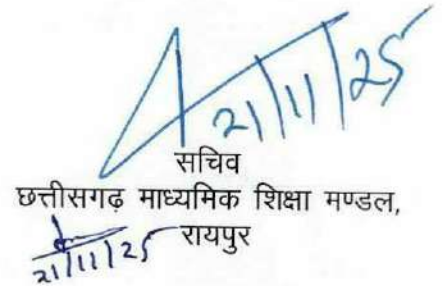 21/11/25
सचिव
छत्तीसगढ़ माध्यमिक शिक्षा मण्डल,
रायपुर
21/11/25